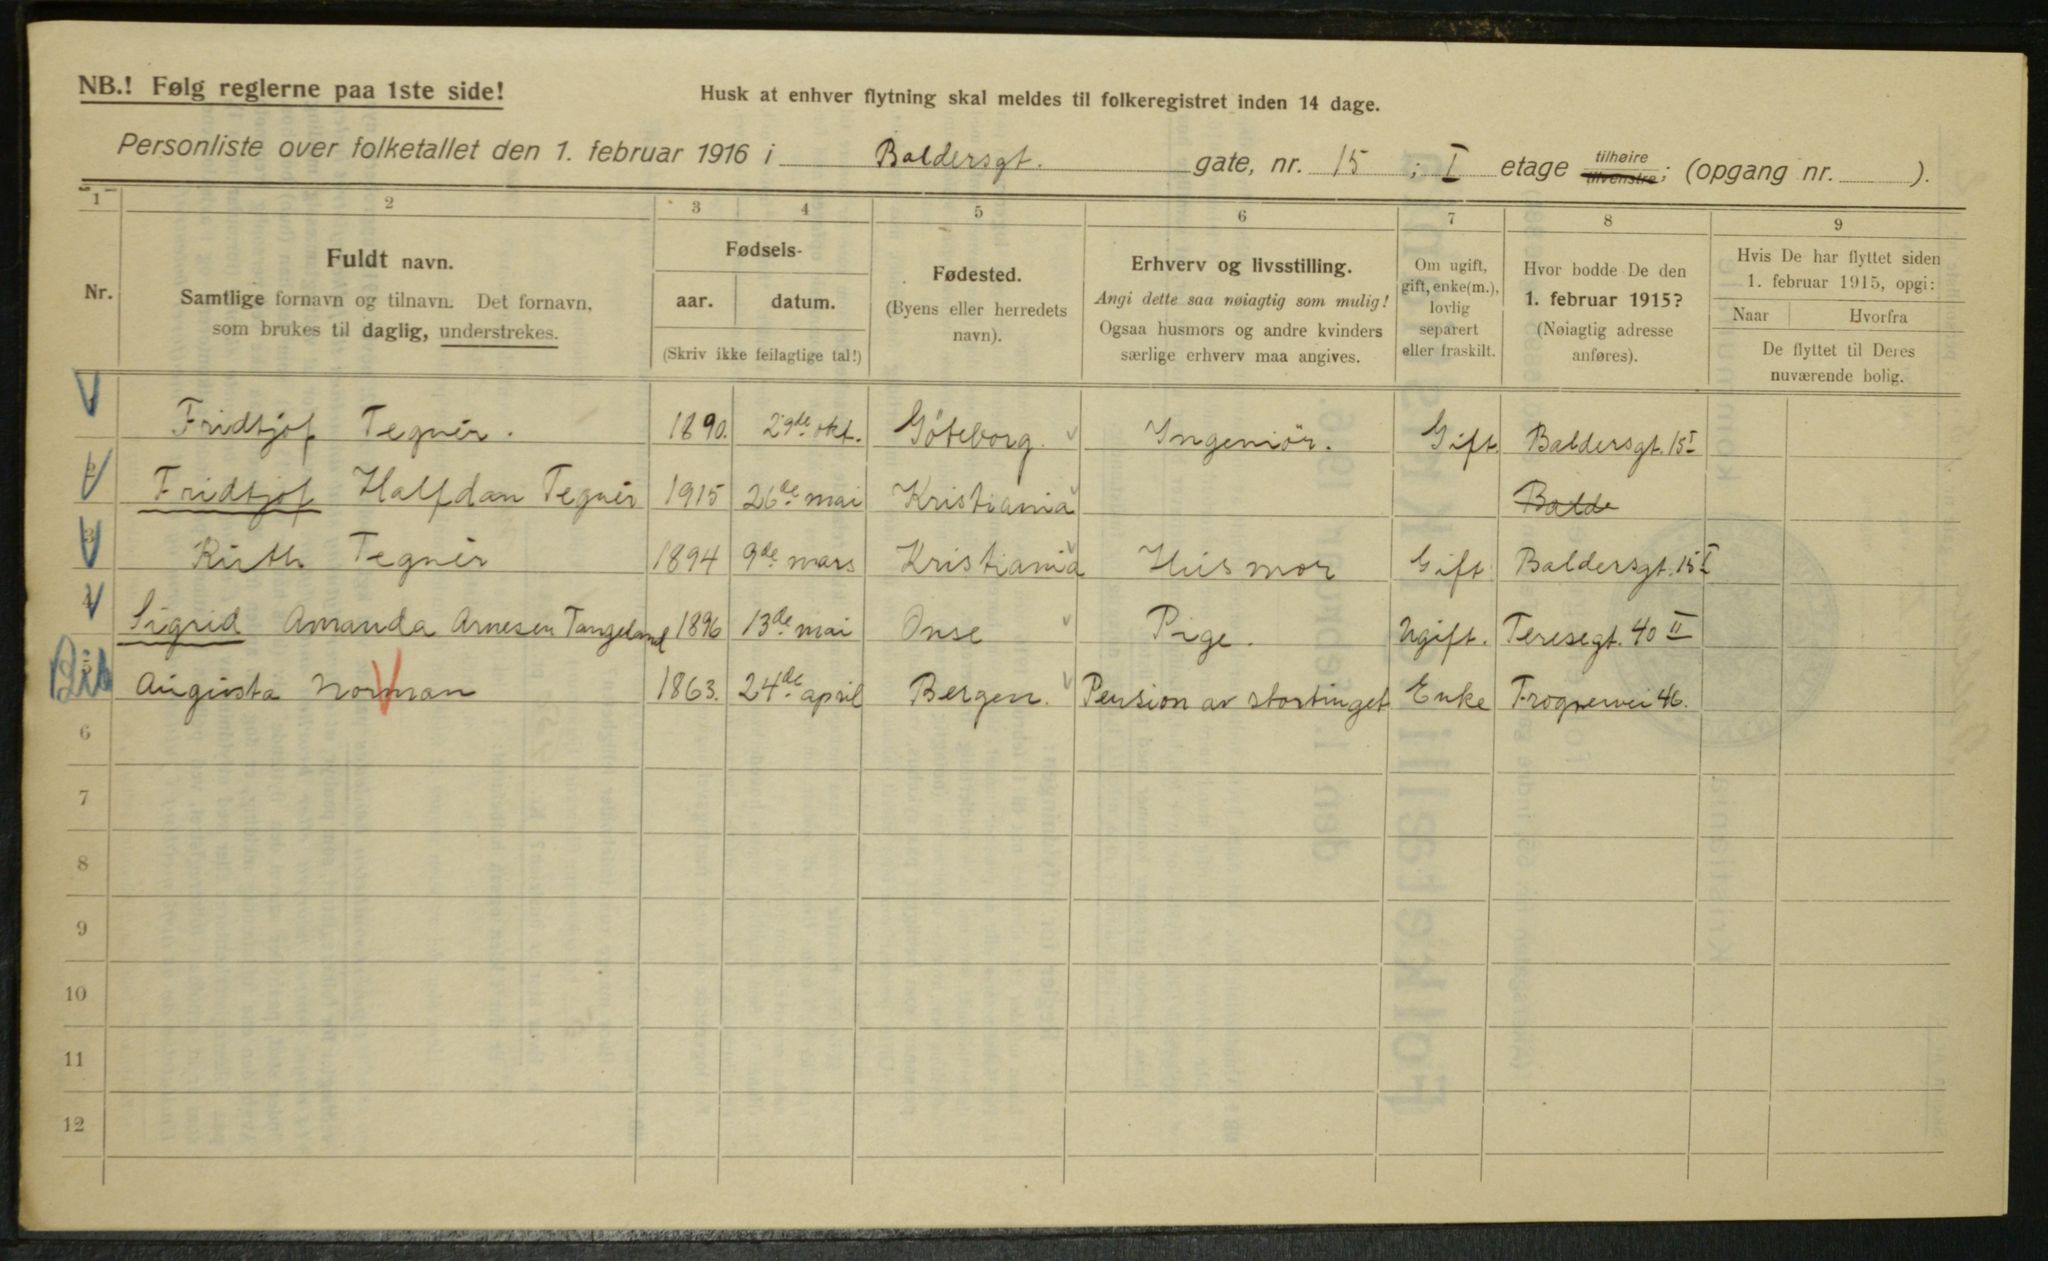 NB.! Følg reglerne paa 1ste side!
Husk at enhver flytning skal meldes til folkeregistret inden 14 dage.
Personliste over folketallet den 1. februar 1916 i Baldersgt. gate, nr. 15 ; I etage tilhøire tilvenstre; (opgang nr. ).
1 2 3 4 5 6 7 8 9
Nr.
Fuldt navn.
Samtlige fornavn og tilnavn. Det fornavn,
som brukes til daglig, understrekes.
Fødsels-
aar. datum.
(Skriv ikke feilagtige tal!)
Fødested.
(Byens eller herredets
navn).
Erhverv og livsstilling.
Angi dette saa nøiagtig som mulig!
Ogsaa husmors og andre kvinders
særlige erhverv maa angives.
Om ugift,
gift, enke(m.),
lovlig
separert
eller fraskilt.
Hvor bodde De den
1. februar 1915?
(Nøiagtig adresse
anføres).
Hvis De har flyttet siden
1. februar 1915, opgi:
Naar Hvorfra
De flyttet til Deres
nuværende bolig.
Fridtjof Tegnér. 1890. 29de okt. Göteborg. Ingeniör. Gift Baldersgt. 15 I
2 Fridtjof Halfdan Tegnér 1915 26de mai Kristiania Balde
3 Ruth Tegnér 1894 9de mars Kristiania Husmor Gift Baldersgt. 15 I
4 Sigrid Amanda Arnesen Tangeland 1896 13de mai Onsø Pige. Ugift. Teresegt. 40 II
5 Augusta Norman 1863. 24de april Bergen. Pension av stortinget Enke Frognervei 46.
6
7
8
9
10
11
12